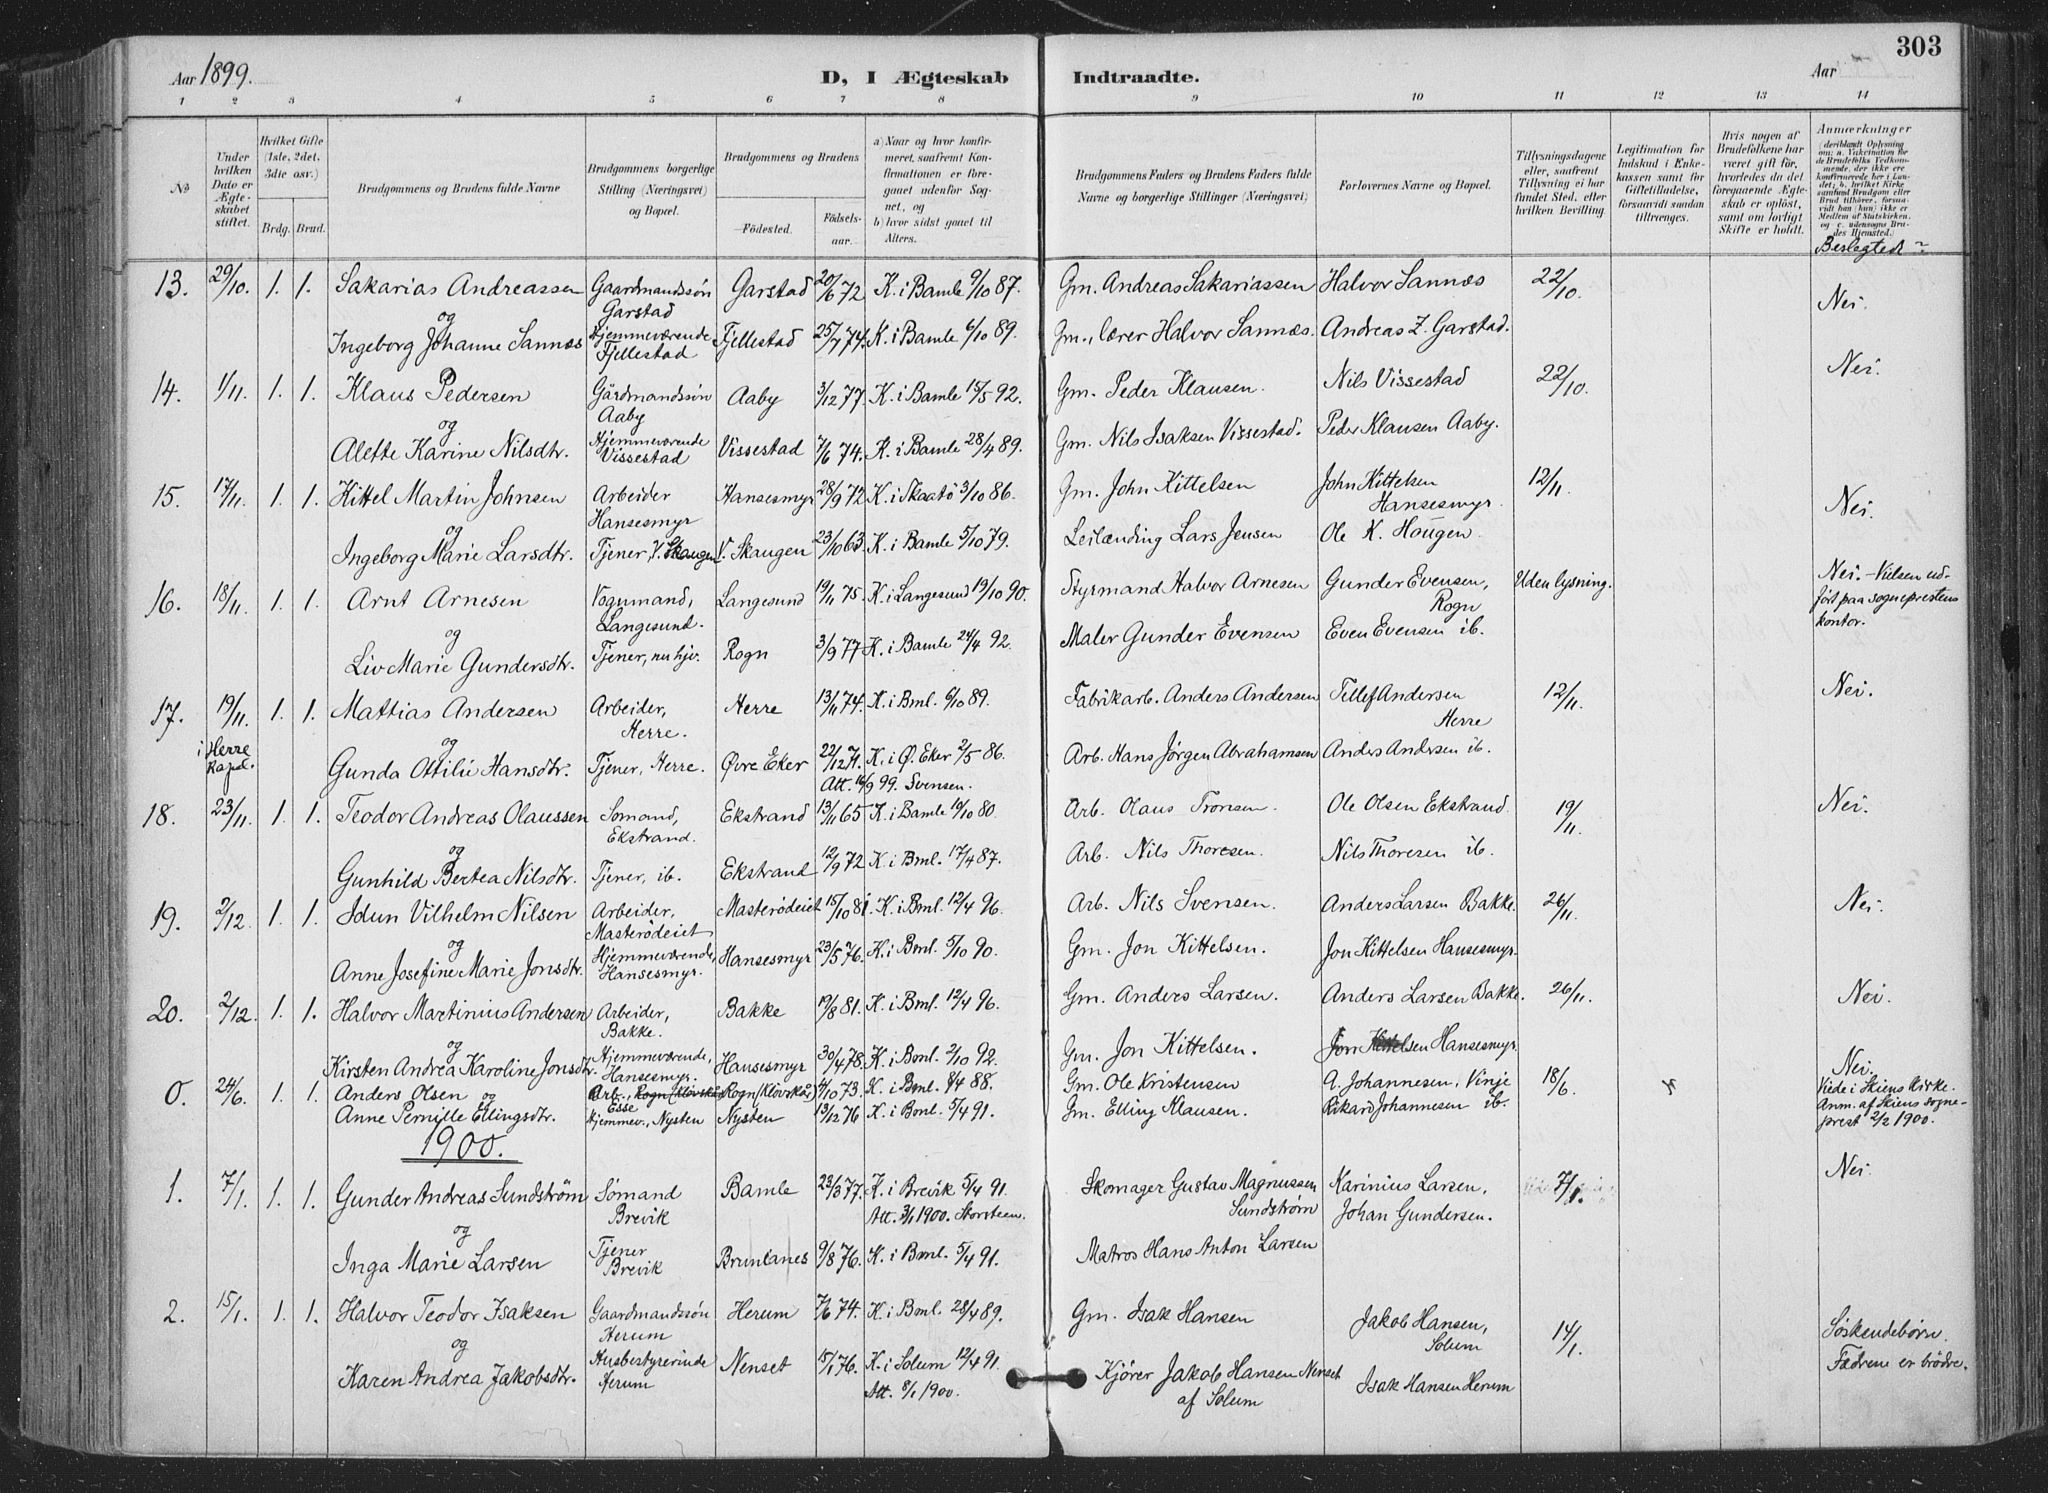 303
Aar 1899.
D, I Ægteskab Indtraadte.
Aar
1 2 3 4 5 6 7 8 9 10 11 12 13 14
No
Under hvilken Dato er Ægteskabet stiftet.
Hvilket Gifte (1ste, 2det, 3die osv.)
Brdg. Brud.
Brudgommens og Brudens fulde Navne
Brudgommens borgerlige Stilling (Næringsvei) og Bopæl.
Brudgommens og Brudens
Födested.
Födsels-aar.
a) Naar og hvor konfirmeret, saafremt Konfirmationen er foregaaet udenfor Sognet, og
b) hvor sidst gaaet til Alters.
Brudgommens Faders og Brudens Faders fulde Navne og borgerlige Stillinger (Næringsvei)
Forlovernes Navne og Bopæl.
Tillysningsdagene eller, saafremt Tillysning ei har fundet Sted, efter hvilken Bevilling.
Legitimation for Indskud i Enkekassen samt for Giftetilladelse, forsaavidt saadan tiltrænges.
Hvis nogen af Brudefolkene har været gift för, hvorledes da det foregaaende Ægteskab er oplöst, samt om lovligt Skifte er holdt.
Anmærkninger (deriblandt Oplysning om: a. Vakcination for de Brudefolks Vedkommende, der ikke ere konfirmerede her i Landet; b. hvilket Kirkesamfund Brudgom eller Brud tilhörer, forsaavidt han (hun) ikke er Medlem af Statskirken. og c. udensogns Brudes Hjemsted.)
Beslegtede?
13. 29/10. 1. 1. Sakarias Andreassen Gaardmandssön Garstad Garstad 20/6 72 K. i Bamle 9/10 87. Gm. Andreas Sakariassen Halvor Sannæs 22/10. Nei.
og
Ingeborg Johanne Sannæs Hjemmeværende Fjellestad Fjellestad 25/7 74. K. i Bamle 6/10 89. Gm., lærer Halvor Sannæs. Andreas Z. Garstad.
14. 1/11. 1. 1. Klaus Pedersen Gårdmandssön Aaby Aaby 3/12 77. K. i Bamle 15/5 92. Gm. Peder Klausen. Nils Vissestad 22/10. Nei.
og
Alette Karine Nilsdtr. Hjemmeværende Vissestad Vissestad 7/6 74. K. i Bamle 28/4 89. Gm. Nils Isaksen Vissestad. Peder Klausen Aaby.
15. 17/11. 1. 1. Kittel Martin Johnsen Arbeider Hansesmyr Hansesmyr 28/9 72 K. i Skaatö 3/10 86. Gm. John Kittelsen John Kittelsen Hansesmyr. 12/11. Nei.
og
Ingeborg Marie Larsdtr. Tjener, V. Skaugen V. Skaugen 23/10 63 K. i Bamle 5/10 79. Leilænding Lars Jensen Ole K. Hougen.
16. 18/11. 1. 1. Arnt Arnesen Vognmand, Langesund. Langesund 19/11 75. K. i Langesund 19/10 90. Styrmand Halvor Arnesen Gunder Evensen, Rogn Uden lysning. Nei. - Vielsen udført paa sogneprestens kontor.
og
Liv Marie Gundersdtr. Tjener, nu hjv. Rogn 3/9 77 K. i Bamle 24/4 92. Maler Gunder Evensen Even Evensen ib.
17. 19/11. 1. 1. Mattias Andersen Arbeider, Herre. Herre 13/11 74. K. i Bml. 6/10 89. Fabrikarb. Anders Andersen Tillef Andersen Herre 12/11. Nei.
i Herre Kapel.
og
Gunda Ottilie Hansdtr. Tjener, Herre. Øvre Eker 22/12 71. K. i Ø. Eker 2/5 86. Att. 16/9 99. Svensen. Arb. Hans Jørgen Abrahamsen Anders Andersen ib.
18. 23/11. 1. 1. Teodor Andreas Olaussen Sømand, Ekstrand. Ekstrand 13/11 65 K. i Bamle 10/10 80. Arb. Olaus Tronsen. Ole Olsen Ekstrand. 19/11. Nei.
og
Gunhild Bertea Nilsdtr. Tjener, ib. Ekstrand 12/9 72 K. i Bml. 17/4 87. Arb. Nils Thoresen. Nils Thoresen ib.
19. 2/12. 1. 1. Idun Vilhelm Nilsen Arbeider, Masterødeiet Masterødeiet 15/10 81. K. i Bml. 12/4 96. Arb. Nils Svensen. Anders Larsen Bakke. 26/11. Nei.
og
Anne Josefine Marie Jonsdtr. Hjemmeværende, Hansesmyr. Hansesmyr 23/5 76. K. i Bml. 5/10 90. Gm. Jon Kittelsen. Jon Kittelsen Hansesmyr.
20. 2/12. 1. 1. Halvor Martinius Andersen Arbeider, Bakke. Bakke 19/8 81. K. i Bml. 12/4 96. Gm. Anders Larsen. Anders Larsen Bakke. 26/11. Nei.
og
Kirsten Andrea Karoline Jonsdtr. Hjemmeværende, Hansesmyr. Hansesmyr 30/4 78. K. i Bml. 2/10 92. Gm. Jon Kittelsen. Jon Kittelsen Hansesmyr.
0. 24/6. 1. 1. Anders Olsen og Arb., Rogn (Klovskår) Esse Rogn (Klovskår) 4/10 73 K. i Bml. 8/4 88. Gm. Ole Kristensen A. Johannesen, Vinje 18/6. Nei. Viede i Skiens kirke. Anm. af Skiens sogneprest 2/2 1900.
Anne Pernille Ellingsdtr. Hjemmev., Nysten Nysten 13/12 76 K. i Bml. 5/4 91. Gm. Elling Klausen. Rikard Johannesen ib.
1900.
1. 7/1. 1. 1. Gunder Andreas Sundström Sømand Brevik Bamle 23/3 77. K. i Brevik 5/4 91. Att. 3/1 1900. Storsteen. Skomager Gustav Magnussen Sundström Karinius Larsen, Johan Gundersen. 7/1. Nei.
og
Inga Marie Larsen Tjener Brevik Brunlanes 9/8 76. K. i Bml. 5/4 91. Matros Hans Anton Larsen
2. 15/1. 1. 1. Halvor Teodor Isaksen Gaardmandssön Herum Herum 7/6 74. K. i Bml. 28/4 89. Gm. Isak Hansen Jakob Hansen, Solum 14/1. Søskendebörn. Fædrene er brödre.
og
Karen Andrea Jakobsdtr. Husbestyrerinde Herum Nenset 15/1 76. K. i Solum 12/4 91. Att. 8/1 1900. Kjörer Jakob Hansen Nenset af Solum Isak Hansen Herum